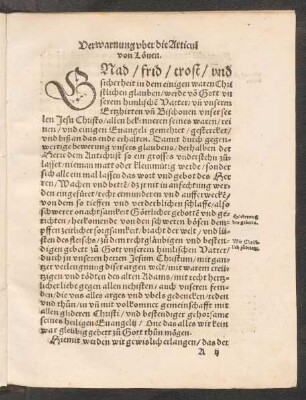 Verwarnung vber die Articul
von Löuen.
GNad / frid / trost / vnd
sicherheit in dem einigen waren Chri
stlichen glauben / werde võ Gott vn
serem himlische Vatter / vñ vnserm
Ertzhirten vñ Bischouen vnser see
len Jesu Christo / allen bekennern seines waren / rei
nen / vnd einigen Euangelij gemehret / gestercket /
vnd biß an das ende erhalten. Damit durch gegen-
wertige bewerung vnsers glaubens / derhalben der
Herr dem Antichrist so ein grosses vnderstehn zů
lasset / nieman matt oder kleinmütig werde / sonder
sich alle ein mal lassen das wort vnd gebot des Her
ren / Wachen vnd bett / dz jr nit in anfechtung wer
den eingefürt / recht ermundern vnd aufferweckē /
von dem so tieffen vnd verderblichen schlaffe / also
schwerer onachtsamkeit Götlicher gebott vnd ge-
richten / herkomende von den schweren bösen dem-
pffen zeitlicher sorgsamkeit / bracht der welt / vnd lü
sten des fleischs / zů dem recht gläubigen vnd besten-
digen gebet zů Gott vnserem himlischen Vatter /
durch in vnseren herren Jesum Christum / mit gan-
tzer verleugnung diser argen welt / mit warem creü-
tzigen vnd tödten des alten Adams / mit recht hertz-
licher liebe gegen allen nehisten / auch vnseren fein-
den / die vns alles arges vnd vbels gedencken / reden
vnd thůn / vñ mit volkomner gemeinschafft mit
allen gliderē Christi / vnd bestendiger gehorsame
seines heiligen Euangelij / One das alles wir kein
war gleubig gebett zů Gott thůn mögen.
Hiemit werden wir gewislich erlangen / das der
A ij